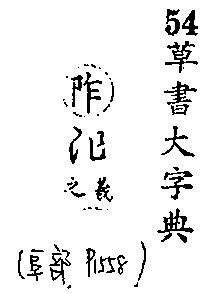 54
草書大字典
阼
阼
之義
(阜部 P1558)